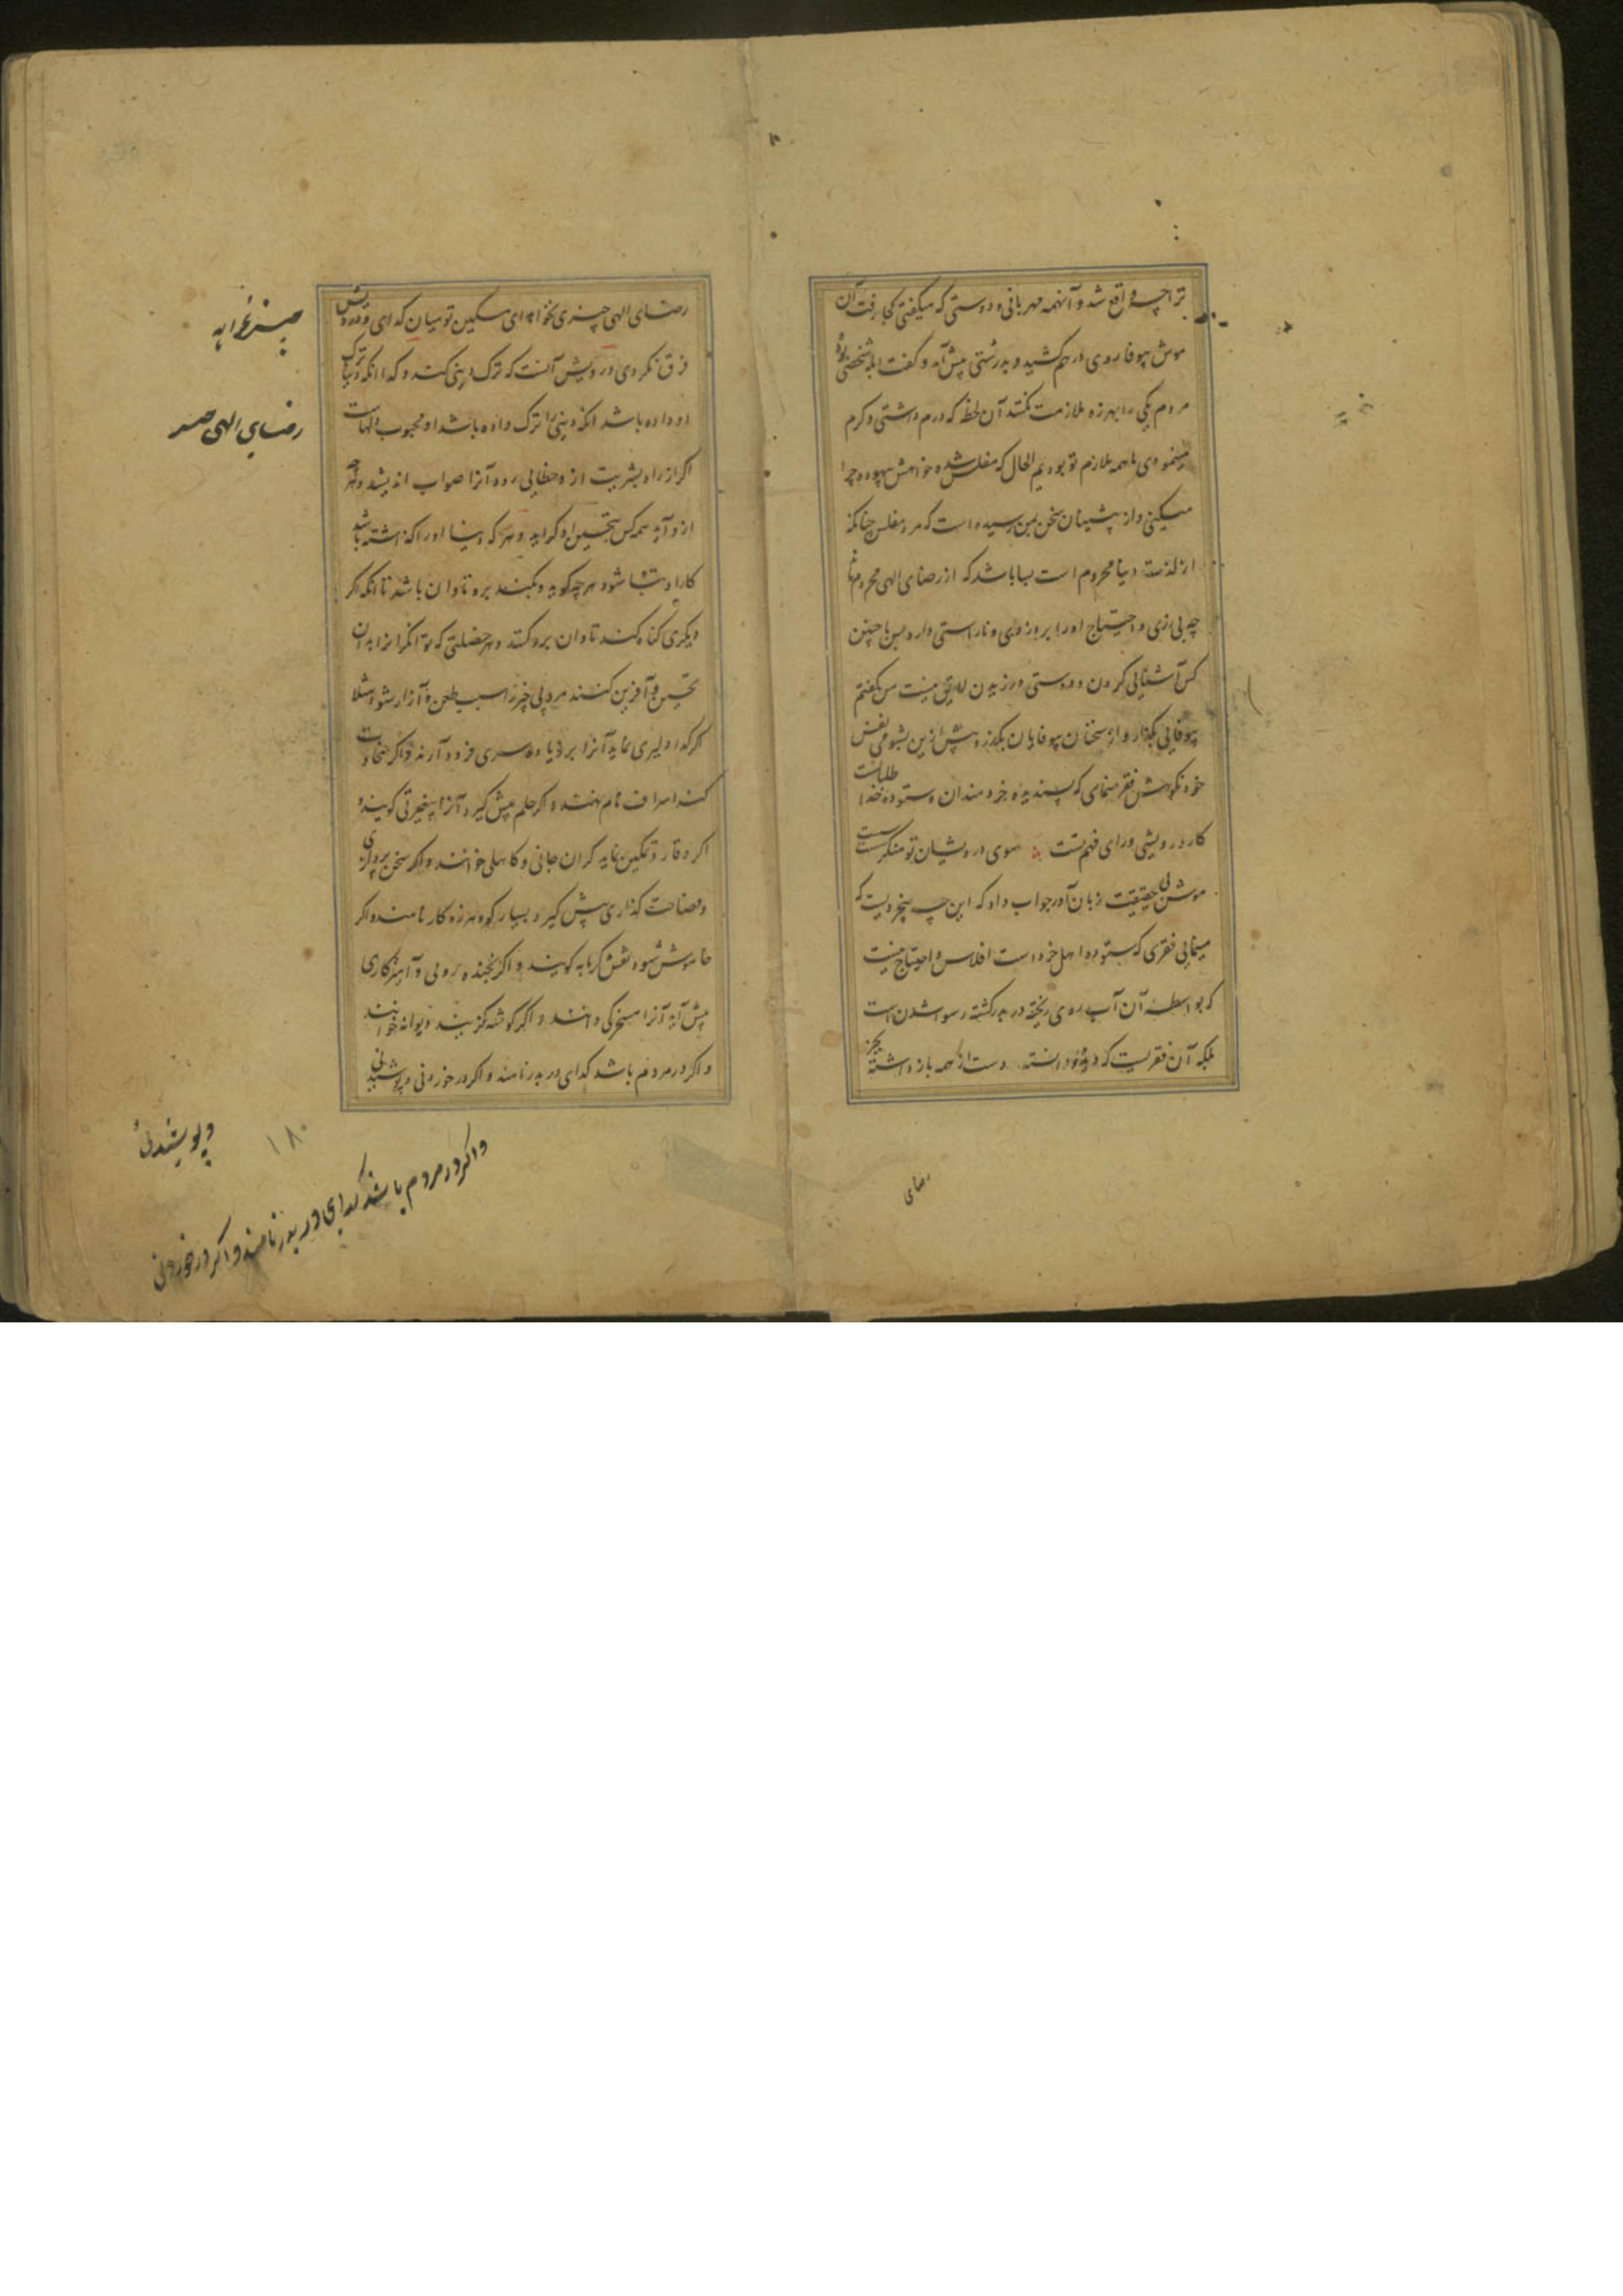 ترا چه واقع شد و آنهمه مهربانی و دوستی که میگفتی کجا رفت آن
موش بیوفا روی در هم کشید و بدرشتی پیش آمد و گفت ابله شخصی بوده
مردم یکی را بهرزه ملازمت نکنند آن لحظه که درم داشتی و کرم
مینمودی ما همه ملازم تو بودیم الحال که مفلس شده خواهش بیهوده چرا
میکنی و از پیشینان سخن بمن رسیده است که مرد مفلس چنانکه
از لذت دنیا محروم است بسا باشد که از رضای الهی محروم ماند
چه بی‌زری و احتیاج او را بر دزدی و ناراستی دارد پس با چنین
کس آشنایی کردن و دوستی ورزیدن لایق نیست من گفتم
بیوفایی بگذار و از سخنان بیوفایان بگذر و پیش ازین بشومی نفس
خود نکوهش فقر منمای که پسندیده خردمندان و ستوده خدا طلبانست
کار درویشی ورای فهم تست سوی درویشان تو منگر سست
موش بی حقیقت زبان آور جواب داد که این چه بیخردیست که
مینمایی فقری که ستوده اهل خرد است افلاس و احتیاج نیست
که بواسطه آن آب روی ریخته در بدر گشته رسوا شدن است
بلکه آن فقریست که دانسته دست از همه باز داشته بجز
رضای
رضای الهی چیزی نخواهد ای مسکین تو میان گدایی و درویشی
فرق نکردی درویش آنست که ترک دنیی کند و گدا انکه دنیا ترک
او داده باشد انکه دنیی را ترک داده باشد او محبوب دلهاست
اگر از راه بشریت ازو خطایی رود آنرا صواب اندیشند و هر چه
ازو آید همه کس بتحسین او گراید و هر که دنیا او را گذاشته باشد
کار او تباه شود هر چه گوید و بکند برو تاوان باشد تا انکه اگر
دیگری گناه کند تاوان برو کنند و هر خصلتی که توانگرانرا بدان
تحسین و آفرین کنند مرد بی چیز را سبب طعن و آزار شود مثلا
اگر گدا دلیری نماید آنرا بر دیاده‌سری فرود آرند و اگر سخاوت
کند اسراف نام نهند و اگر حلم پیش گیرد آنرا بیغیرتی گویند و
اگر وقار و تمکین نماید گران جانی و کاهلی خوانند و اگر سخن پردازی
و فصاحت گذاری پیش گیرد بسیار گو و هرزه کار نامند و اگر
خاموش شود نقش گرمابه گویند و اگر بخنده رویی و آمیزگاری
پیش آید آنرا مسخرگی دانند و اگر گوشه گزیند دیوانه خوانند
و اگر در مردم باشد گدای در بدر نامند و اگر در خوردنی و پوشیدنی
چیز نخواهد
رضای الهی چیز
و پوشیدنی
۱۸۰
و اگر در مردم باشد گدای در بدر نامند و اگر در خوردنی